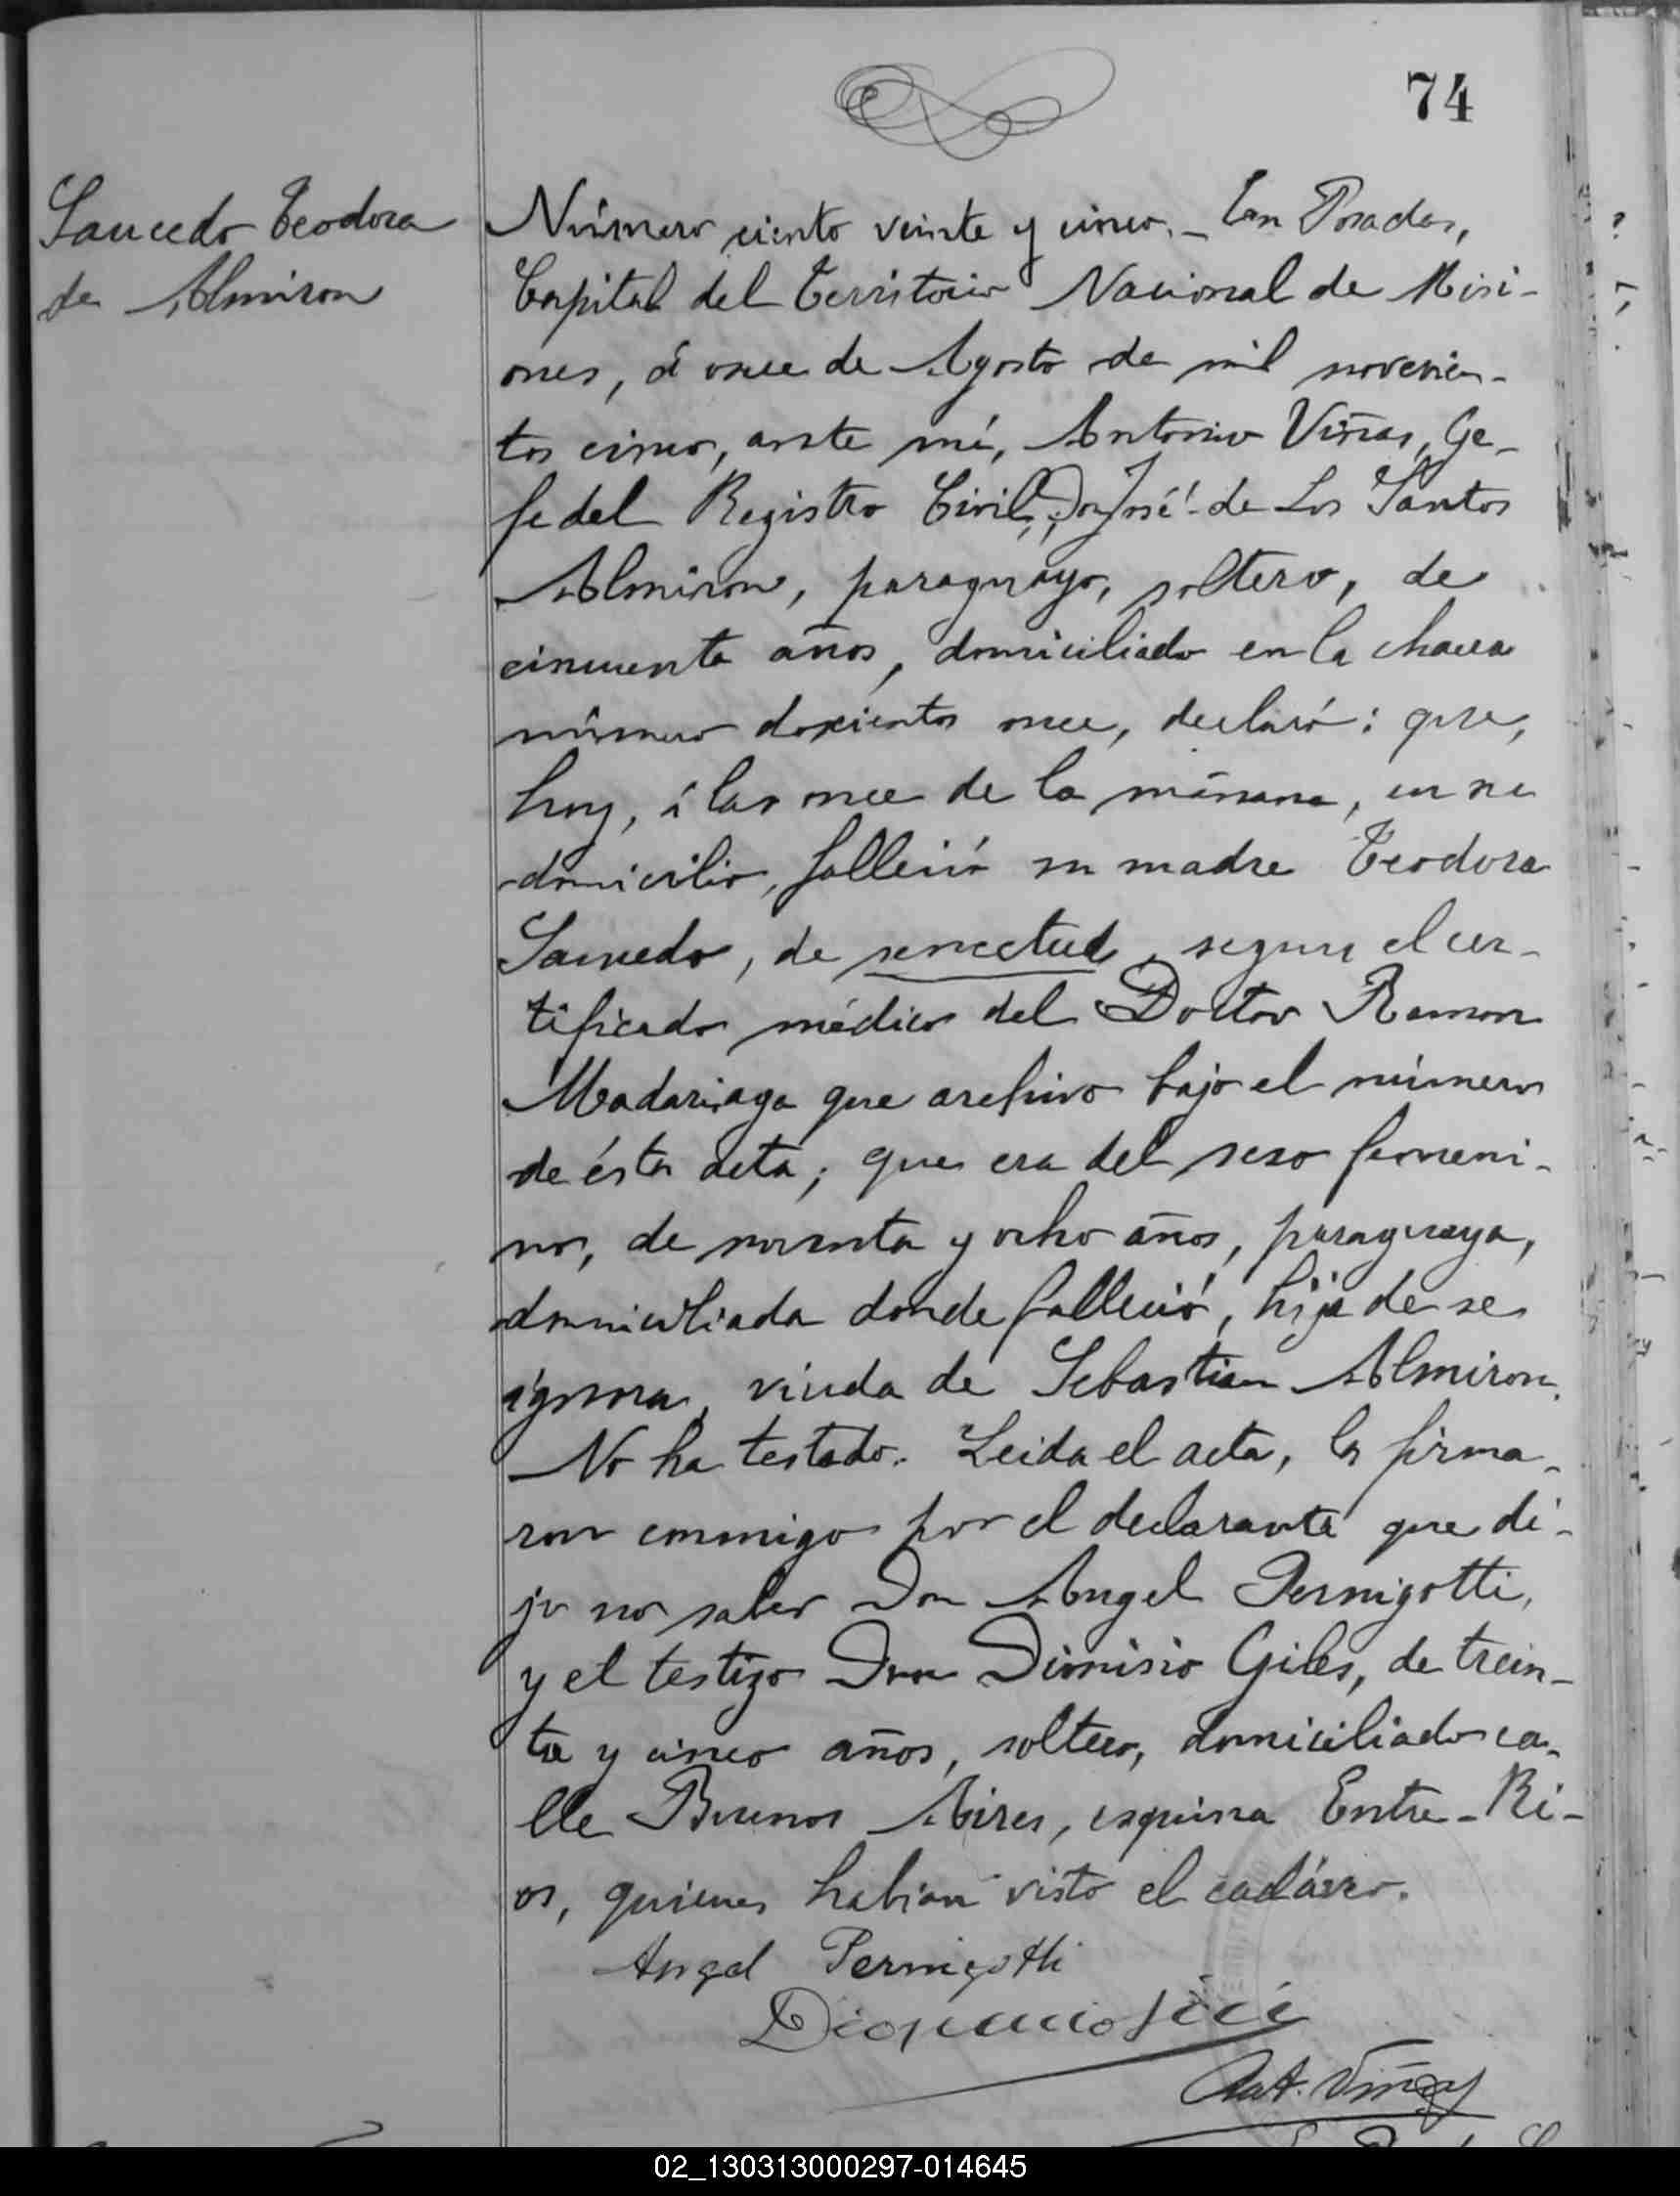 74
Saucedo Teodora
de Almiron
Número ciento veinte y cinco. – En Posadas,
Capital del Territorio Nacional de Misi-
ones, á once de Agosto de mil novecien-
tos cinco, ante mí, Antonio Viñas, Ge-
fe del Registro Civil, Don José de Los Santos
Almiron, paraguayo, soltero, de
cincuenta años, domiciliado en la chacra
número doscientos once, declaró: que,
hoy, á las once de la mañana, en su
domicilio, falleció su madre Teodora
Saucedo, de senectud, segun el cer-
tificado médico del Doctor Ramon
Madariaga que archivo bajo el número
de ésta acta; que era del sexo femeni-
no, de noventa y ocho años, paraguaya,
domiciliada donde falleció, hija de se
ignora, viuda de Sebastian Almiron.
No ha testado. Leida el acta, la firma-
ron conmigo por el declarante que di-
jo no saber Don Angel Pernigotti,
y el testigo Don Dionisio Giles, de trein-
ta y cinco años, soltero, domiciliado ca-
lle Buenos Aires, esquina Entre-Ri-
os, quienes habian visto el cadáver.
Angel Pernigotti
Ant. Viñas
02_130313000297-014645